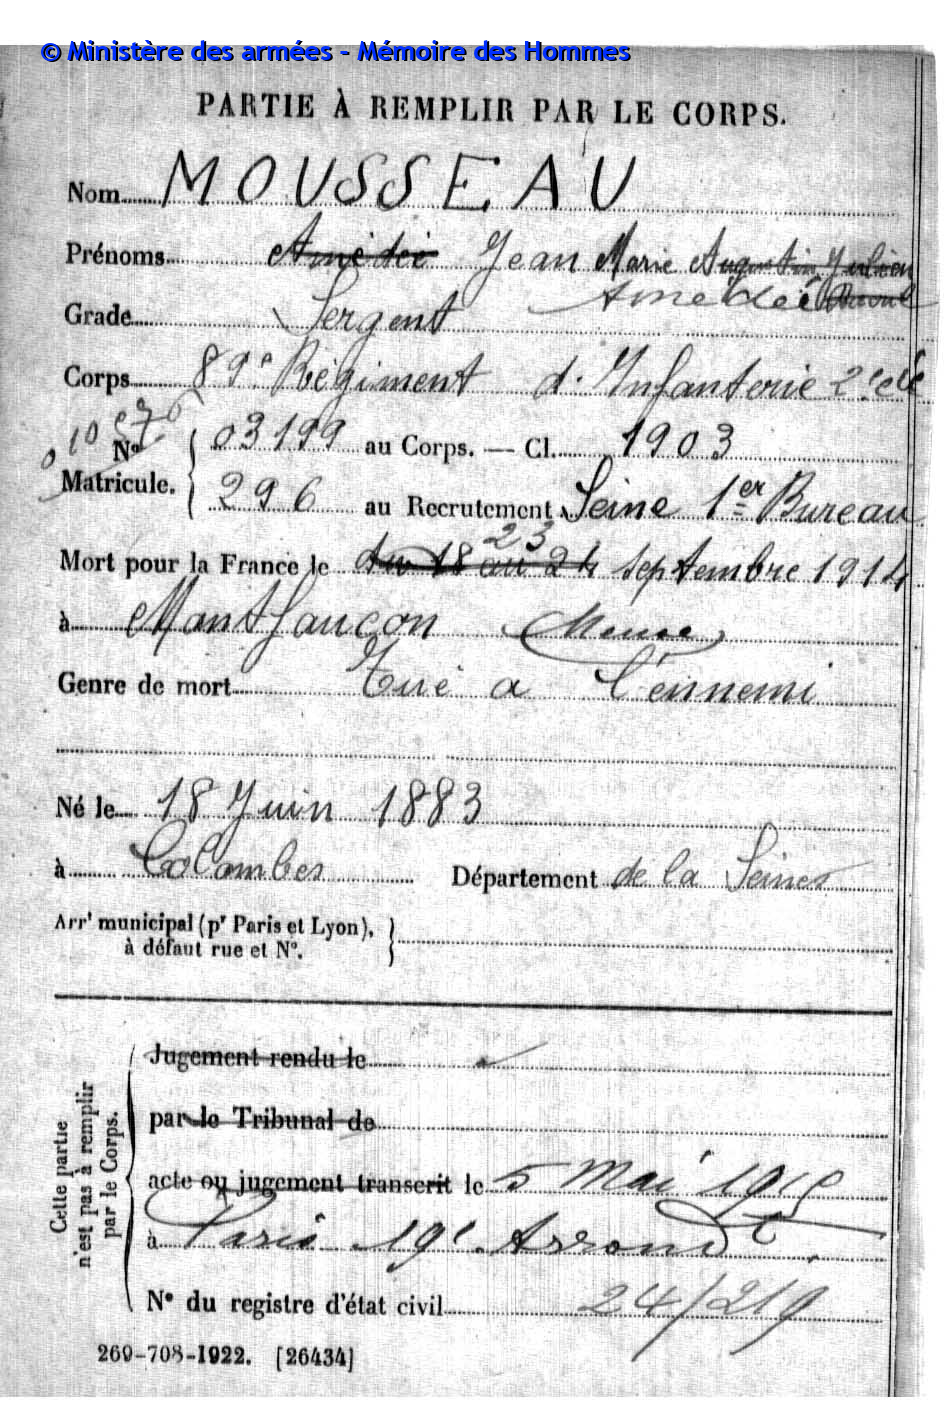 © Ministère des armées - Mémoire des Hommes
PARTIE À REMPLIR PAR LE CORPS.
Nom MOUSSEAU
Prénoms Amédée Jean Marie Augustin Julien
Amédée Raoul
Grade Sergent
Corps 89e Régiment d'Infanterie 2e Cie
010
No 03199 au Corps. — Cl. 1903
Matricule. 296 au Recrutement Seine 1er Bureau
23
Mort pour la France le du 18 au 24 septembre 1914
à Montfaucon Meuse
Genre de mort Tué a l'ennemi
Né le 18 Juin 1883
à Colombes Département de la Seine
Arrt municipal (pr Paris et Lyon),
à défaut rue et No.
Cette partie
n'est pas à remplir
par le Corps.
Jugement rendu le
par le Tribunal de
acte ou jugement transcrit le 5 Mai 1915
à Paris 19e Arrondt
No du registre d'état civil 24/219
269-708-1922. [26434]